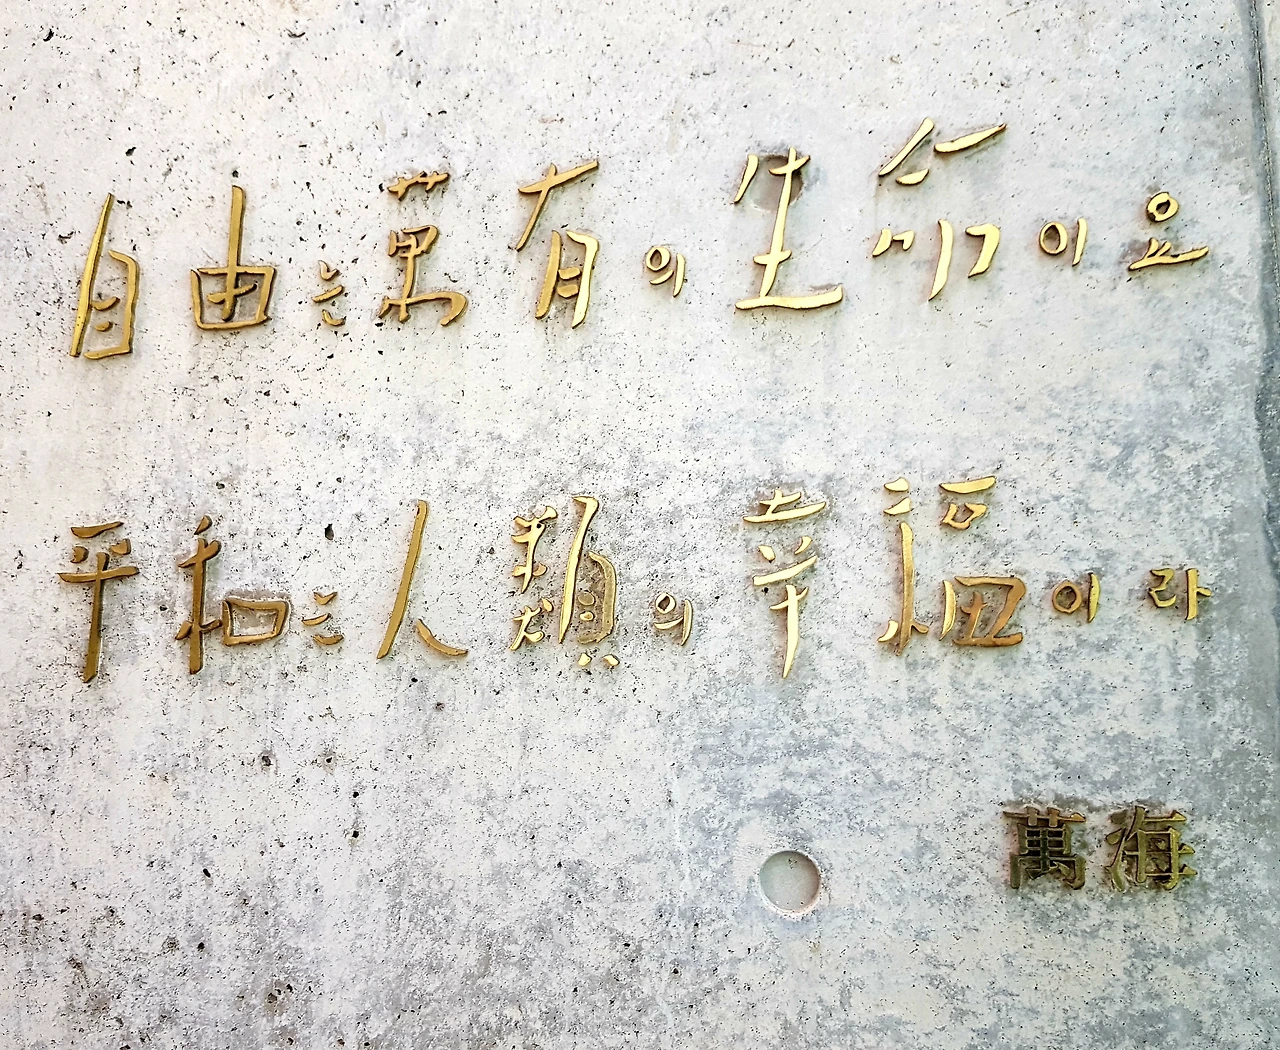 自由는 萬有의 生命이요
平和는 人類의 幸福이라
萬海